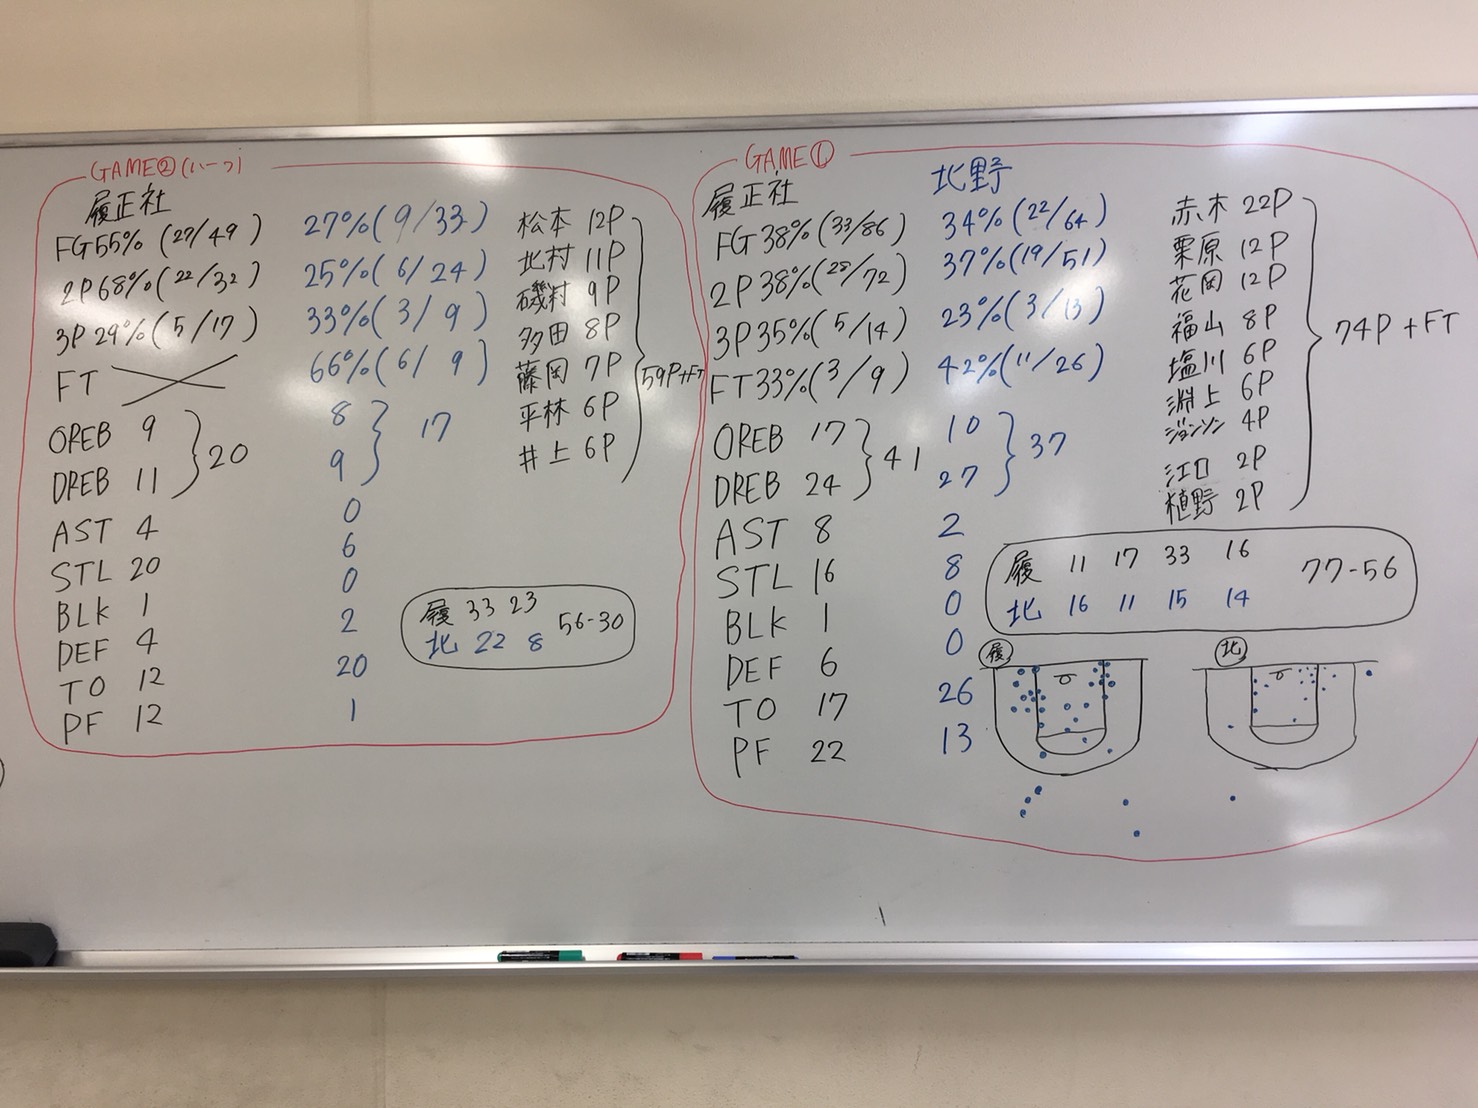 GAME②(ハーフ)
履正社
FG 55% (27/49) 27% (9/33)
2P 68% (22/32) 25% (6/24)
3P 29% (5/17) 33% (3/9)
FT 66% (6/9)
OREB 9 8
DREB 11 9
20 17
AST 4 0
STL 20 6
BLK 1 0
DEF 4 2
TO 12 20
PF 12 1
松本 12P
北村 11P
磯村 9P
多田 8P
藤岡 7P
平林 6P
井上 6P
59P+FT
履 33 23
北 22 8
56-30
GAME①
履正社 北野
FG 38% (33/86) 34% (22/64)
2P 38% (28/72) 37% (19/51)
3P 35% (5/14) 23% (3/13)
FT 33% (3/9) 42% (11/26)
OREB 17 10
DREB 24 27
41 37
AST 8 2
STL 16 8
BLK 1 0
DEF 6 0
TO 17 26
PF 22 13
赤木 22P
栗原 12P
花岡 12P
福山 8P
塩川 6P
淵上 6P
ジョンソン 4P
江口 2P
植野 2P
74P+FT
履 11 17 33 16
北 16 11 15 14
77-56
履
北